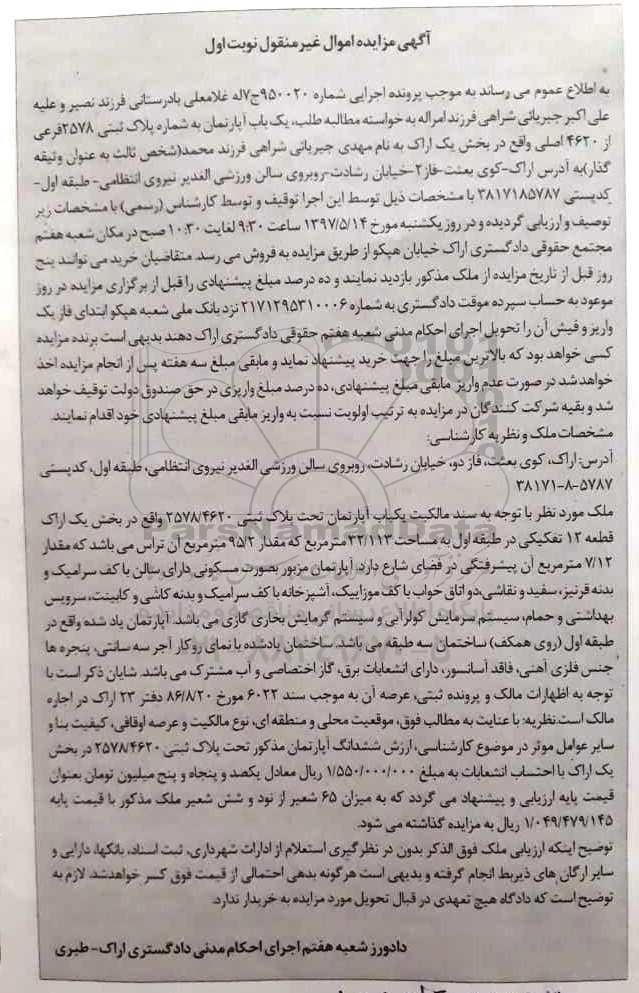 آگهی مزایده اموال غیر منقول نوبت اول
به اطلاع عموم می رساند به موجب پرونده اجرایی شماره ۹۵۰۰۲۰ج۷له غلامعلی بادرستانی فرزند نصیر و علیه
علی اکبر جیریائی شراهی فرزند امراله به خواسته مطالبه طلب، یک باب آپارتمان به شماره پلاک ثبتی ۲۵۷۸فرعی
از ۴۶۲۰ اصلی واقع در بخش یک اراک به نام مهدی جیریائی شراهی فرزند محمد(شخص ثالث به عنوان وثیقه
گذار)به آدرس اراک-کوی بعثت-فاز۲-خیابان رشادت-روبروی سالن ورزشی الغدیر نیروی انتظامی- طبقه اول-
کدپستی ۳۸۱۷۱۸۵۷۸۷ با مشخصات ذیل توسط این اجرا توقیف و توسط کارشناس (رسمی) با مشخصات زیر
توصیف و ارزیابی گردیده و در روز یکشنبه مورخ ۱۳۹۷/۵/۱۴ ساعت ۹:۳۰ لغایت ۱۰:۳۰ صبح در مکان شعبه هفتم
مجتمع حقوقی دادگستری اراک خیابان هپکو از طریق مزایده به فروش می رسد. متقاضیان خرید می توانند پنج
روز قبل از تاریخ مزایده از ملک مذکور بازدید نمایند و ده درصد مبلغ پیشنهادی را قبل از برگزاری مزایده در روز
موعود به حساب سپرده موقت دادگستری به شماره ۲۱۷۱۲۹۵۳۱۰۰۰۶ نزد بانک ملی شعبه هپکو ابتدای فاز یک
واریز و فیش آن را تحویل اجرای احکام مدنی شعبه هفتم حقوقی دادگستری اراک دهند بدیهی است برنده مزایده
کسی خواهد بود که بالاترین مبلغ را جهت خرید پیشنهاد نماید و مابقی مبلغ سه هفته پس از انجام مزایده اخذ
خواهد شد در صورت عدم واریز مابقی مبلغ پیشنهادی، ده درصد مبلغ واریزی در حق صندوق دولت توقیف خواهد
شد و بقیه شرکت کنندگان در مزایده به ترتیب اولویت نسبت به واریز مابقی مبلغ پیشنهادی خود اقدام نمایند.
مشخصات ملک و نظریه کارشناسی:
آدرس: اراک، کوی بعثت، فاز دو، خیابان رشادت، روبروی سالن ورزشی الغدیر نیروی انتظامی، طبقه اول، کدپستی
۳۸۱۷۱-۸-۵۷۸۷
ملک مورد نظر با توجه به سند مالکیت یکباب آپارتمان تحت پلاک ثبتی ۲۵۷۸/۴۶۲۰ واقع در بخش یک اراک
قطعه ۱۲ تفکیکی در طبقه اول به مساحت ۳۲/۱۱۳ مترمربع که مقدار ۹۵/۲ مترمربع آن تراس می باشد که مقدار
۷/۱۲ مترمربع آن پیشرفتگی در فضای شارع دارد. آپارتمان مزبور بصورت مسکونی دارای سالن با کف سرامیک و
بدنه قرنیز، سفید و نقاشی،دو اتاق خواب با کف موزاییک، آشپزخانه با کف سرامیک و بدنه کاشی و کابینت، سرویس
بهداشتی و حمام، سیستم سرمایش کولرآبی و سیستم گرمایش بخاری گازی می باشد. آپارتمان یاد شده واقع در
طبقه اول (روی همکف) ساختمان سه طبقه می باشد. ساختمان یادشده با نمای روکار آجر سه سانتی، پنجره ها
جنس فلزی آهنی، فاقد آسانسور، دارای انشعابات برق، گاز اختصاصی و آب مشترک می باشد. شایان ذکر است با
توجه به اظهارات مالک و پرونده ثبتی، عرصه آن به موجب سند ۶۰۲۲ مورخ ۸۶/۸/۲۰ دفتر ۲۳ اراک در اجاره
مالک است.نظریه: با عنایت به مطالب فوق، موقعیت محلی و منطقه ای، نوع مالکیت و عرصه اوقافی، کیفیت بنا و
سایر عوامل موثر در موضوع کارشناسی، ارزش ششدانگ آپارتمان مذکور تحت پلاک ثبتی ۲۵۷۸/۴۶۲۰ در بخش
یک اراک با احتساب انشعابات به مبلغ ۱/۵۵۰/۰۰۰/۰۰۰ ریال معادل یکصد و پنجاه و پنج میلیون تومان بعنوان
قیمت پایه ارزیابی و پیشنهاد می گردد که به میزان ۶۵ شعیر از نود و شش شعیر ملک مذکور با قیمت پایه
۱/۰۴۹/۴۷۹/۱۴۵ ریال به مزایده گذاشته می شود.
توضیح اینکه ارزیابی ملک فوق الذکر بدون در نظر گیری استعلام از ادارات شهرداری، ثبت اسناد، بانکها، دارایی و
سایر ارگان های ذیربط انجام گرفته و بدیهی است هرگونه بدهی احتمالی از قیمت فوق کسر خواهدشد. لازم به
توضیح است که دادگاه هیچ تعهدی در قبال تحویل مورد مزایده به خریدار ندارد.
دادورز شعبه هفتم اجرای احکام مدنی دادگستری اراک- طبری